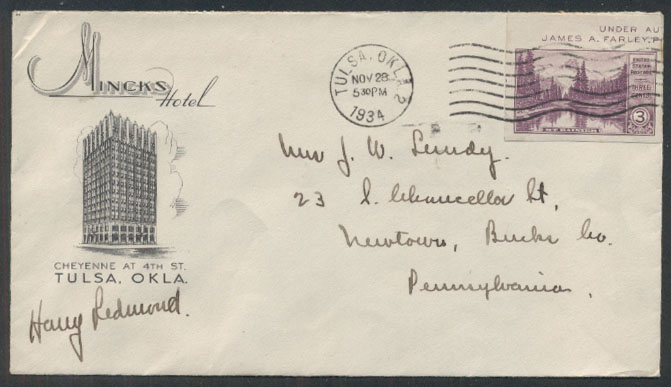 Mincks
Hotel
CHEYENNE AT 4TH ST.
TULSA, OKLA.
Harry Redmond.
TULSA, OKLA. 2
NOV 28
5:30PM
1934
UNDER AU
JAMES A. FARLEY, P
UNITED
STATES
POSTAGE
THREE
CENTS
3
MT. RAINIER
J. W. Lundy.
23 S. Chancellor St,
Newtown, Bucks Co.
Pennsylvania.